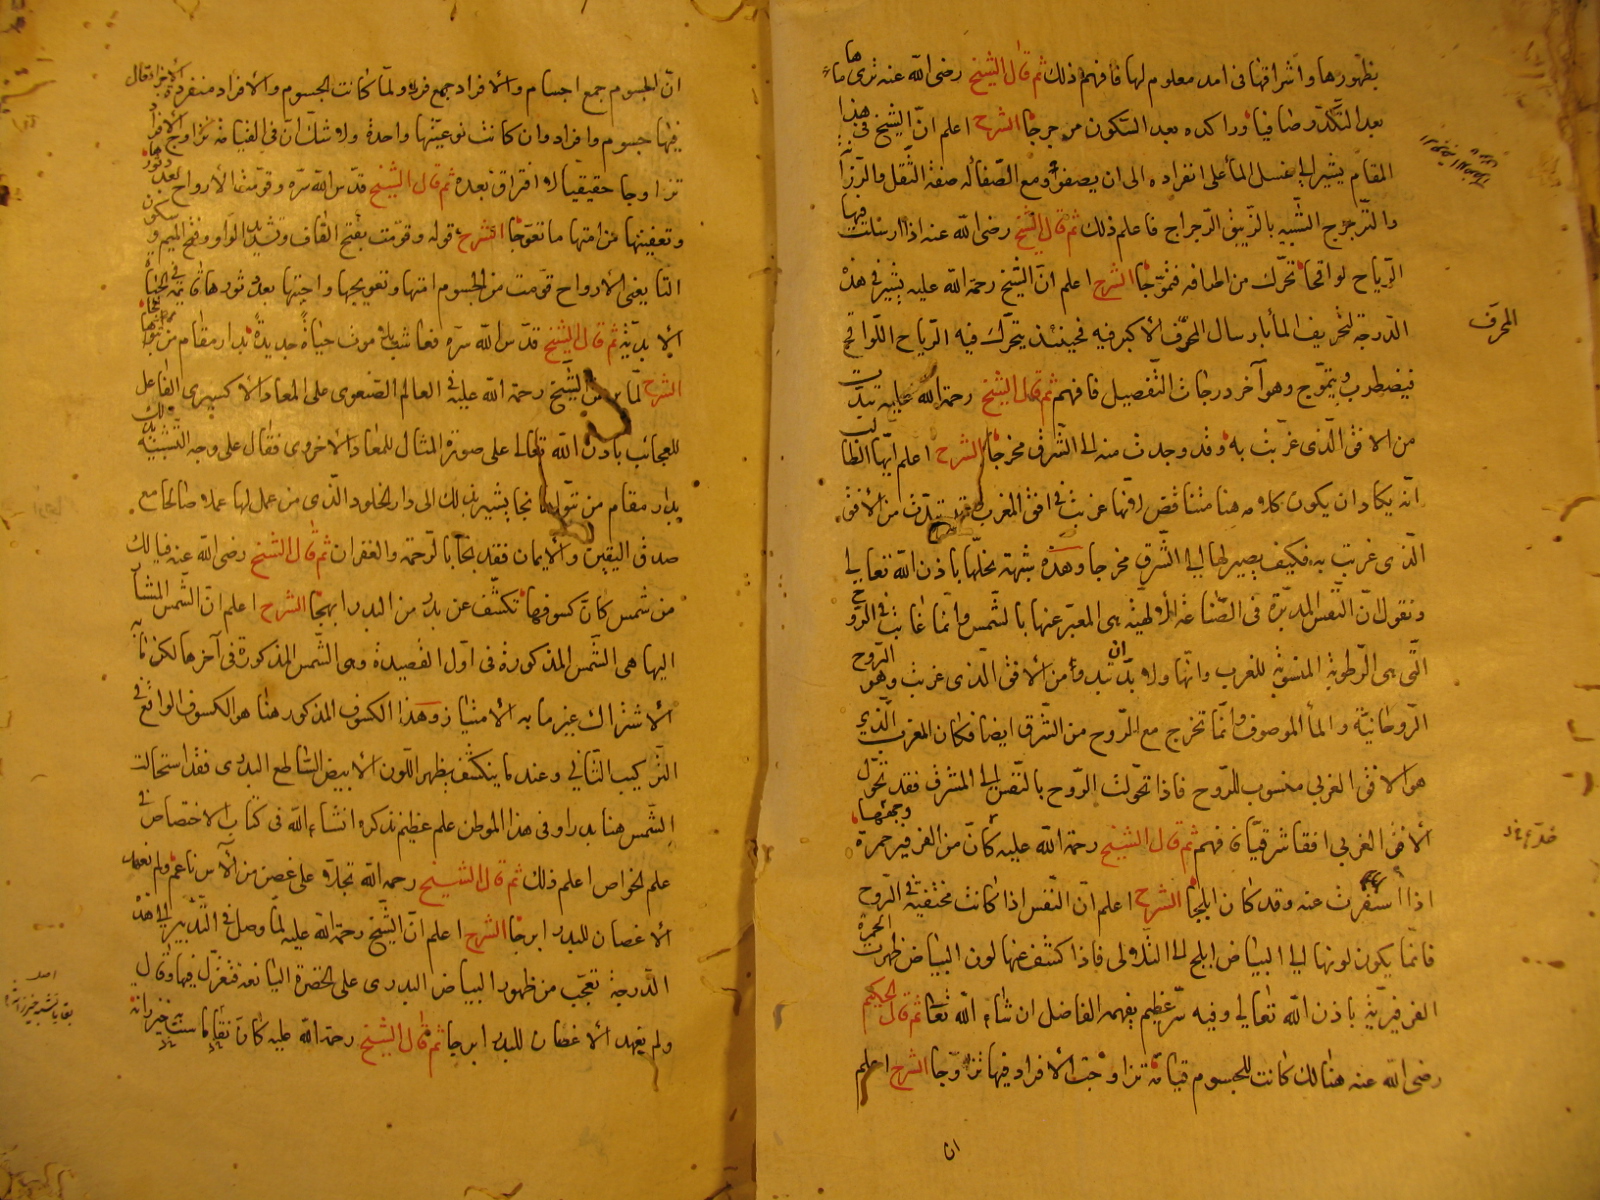 بظهورها واشراقها فى امد معلوم لها فافهم ذلك ثم قال الشيخ رضى الله عنه ترى ماءها
بعد التكدر صافيا وراكده بعد السكون مرجرجا الشرح اعلم ان الشيخ فى هذا
المقام يشير الى غسل المأ على انفراده الى ان يصفو ومع الصفا له صفة الثقل والرزانة
والترجرج الشبيه بالزيبق الرجراج فاعلم ذلك ثم قال الشيخ رضى الله عنه اذا ارسلت فيها
الرياح لواقحا تحرك من اطرافه فتموجا الشرح اعلم ان الشيخ رحمة الله عليه يشير فى هذه
الدرجة لتحريف المأ بارسال المحرف الأكبر فيه فحينئذ يتحرك فيه الرياح اللواقح
فيضطرب ويتموج وهو آخر درجات التفصيل فافهم ثم قال الشيخ رحمة الله عليه تبدت
من الافق الذى غربت به وقد وجدت منه الى الشرق مخرجا الشرح اعلم ايها الطالب
انه يكاد ان يكون كلامه هنا متناقض لانها غربت فى افق المغرب ثم تبدت من الأفق
الذى غربت به فكيف يصير لها الى الشرق مخرجا وهذه شبهة نحلها باذن الله تعالى
ونقول ان النفس المدبرة فى الصناعة الالهية هى المعبر عنها بالشمس وانما غابت فى الروح
التى هى الرطوبة المنسوبة للغرب وانها ولا بد ان تبدو من الأفق الذى غربت وهو الروح
الروحانية والمأ الموصوف وانما تخرج مع الروح من الشرق ايضا فكان المغرب الذي
هو الافق الغربي منسوب للروح فاذا تحولت الروح بالنفس الى المشرق فقد تحول
الافق الغربي افقا شرقيا فافهم ثم قال الشيخ رحمة الله عليه كأن من الفرفير حمرة وجهها
اذا اسفرت عنه وقد كان ابلجا الشرح اعلم ان النفس اذا كانت مختفية فى الروح
فانما يكون لونها الى البياض ابلج الى التلألى فاذا كشف عنها لون البياض ظهرت الحمرة
الفرفيرية باذن الله تعالى وفيه سر عظيم يفهمه الفاضل ان شاء الله تعا ثم قال الحكيم
رضى الله عنه هنالك كانت للجسوم قيامة تزاوجت الأفراد فيها تزاوجا الشرح اعلم
ان
المحرف
ان الجسوم جمع اجسام والأفراد جمع فرد ولما كانت الجسوم والأفراد منفردة الأفراد قال
فيها جسوم وافراد وان كانت نوعيتها واحدة ولا شك ان فى القيامة تزاوج الافراد
تزاوجا حقيقيا لا افتراق بعده ثم قال الشيخ قدس الله سره وقومت الأرواح بعد دثورها
وتعفينها من امتها ما تعوجا الشرح قوله وقومت بفتح القاف وتشديد الواو وفتح الميم وسكون
التا يعنى الأرواح قومت من الجسوم امتها وتعويجها واحيتها بعد دثورها فى الحياة
الابدية ثم قال الشيخ قدس الله سره فعاشت بلا موت حياة جديدة بدار مقام من تبوأها نجا
الشرح لما الشيخ رحمة الله عليه فى العالم الصنعوى على المعاد الاكسيرى الفاعل
للعجائب باذن الله تعالى على صورة المثال للمعاد الأخروى فقال على وجه التشبيه بذلك
بدار مقام من تبوأها نجا يشير بذلك الى دار الخلود الذى من عمل لها عملا صالحا مع
صدق اليقين والأيمان فقد نجا بالرحمة والغفران ثم قال الشيخ رضى الله عنه فيا لك
من شمس كان كسوفها تكشف عن بدر من البدر ابهجا الشرح اعلم ان الشمس المشار
اليها هى الشمس المذكورة فى اول القصيدة وهى الشمس المذكورة فى آخرها لكن ما به
الاشتراك غير ما به الامتياز وهذا الكسوف المذكور هنا هو الكسوف الواقع فى
التركيب الثانى وعند ما ينكشف يظهر اللون الأبيض الساطع البدرى فقد استحالت
الشمس هنا بدرا وفى هذا الموطن علم عظيم نذكره انشاء الله فى كتاب الاختصاص فى
علم الخواص اعلم ذلك ثم قال الشيخ رحمه الله تجلا على غصن من الآس ناعم ولم نعهد
الاغصان للبدر ابرجا الشرح اعلم ان الشيخ رحمة الله عليه لما وصل فى التدبير الى هذه
الدرجة تعجب من ظهور البياض البدرى على الخضرة اليانعة فتغزل فيها وقال
ولم يعهد الأغصان للبدر ابرجا ثم قال الشيخ رحمة الله عليه كأن نقا ماست به خيزرانة